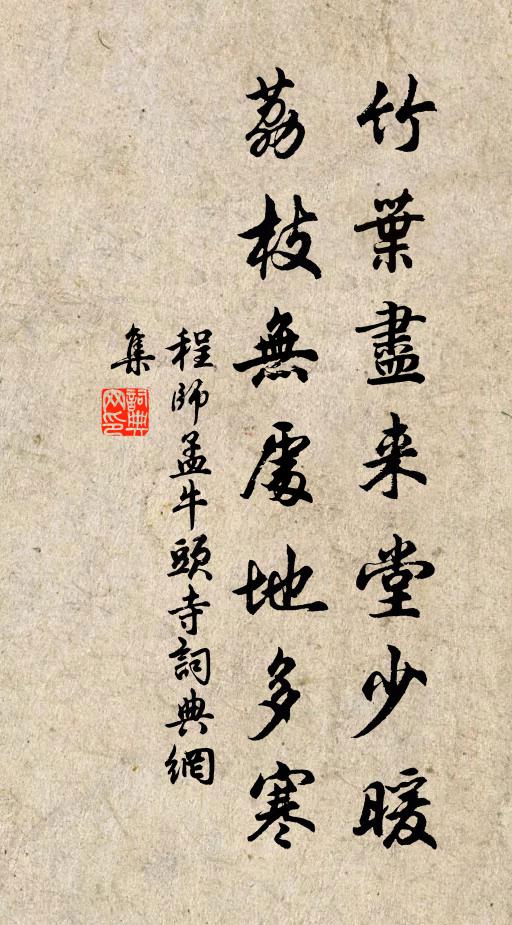 竹葉盡来堂少暖
荔枝無處地多寒
程師孟牛頭寺詞典網
集
詞典網印